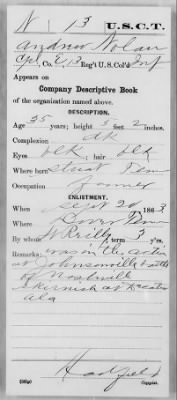 N | 13 | U.S.C.T.
Andrew Nolan
Cpl, Co. E, 13 Reg't U.S. Col'd Inf
Appears on
Company Descriptive Book
of the organization named above.
DESCRIPTION.
Age 35 years; height 5 feet 2 inches.
Complexion dk
Eyes blk; hair blk
Where born Stuart Tenn
Occupation Farmer
ENLISTMENT.
When Sept 20, 1863.
Where Dover Tenn
By whom W Reilly; term 3 y'rs.
Remarks: was in the action
at Johnsonville battle
of Nashville
skirmish at Decatur
Ala
Hadfield
Copyist.